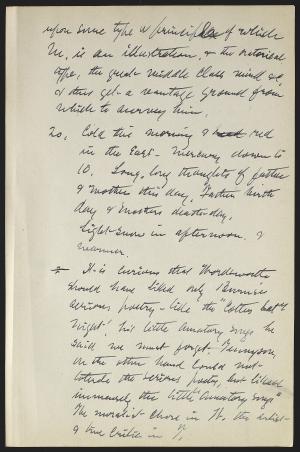 upon some type or principle of which
M. is an illustration, & the rhetorical
type, the great middle class mind &c
& thus get a vantage ground from
which to survey him.
20, Cold this morning & red
in the East. Mercury down to
10. Long, long thoughts of father
& Mother this day, Father birth
day & Mothers death-day,
Light snow in afternoon. &
warmer.
It is curious that Wordsworth
should have liked only Burns's
serious poetry - like the "Cotters Saty
Night". his little amatory songs he
said we must forget. Tennyson,
on the other hand could not
tolerate the serious poetry, but liked
immensely the little "amatory songs"
The moralist chose in W. the artist
& true critic in T,